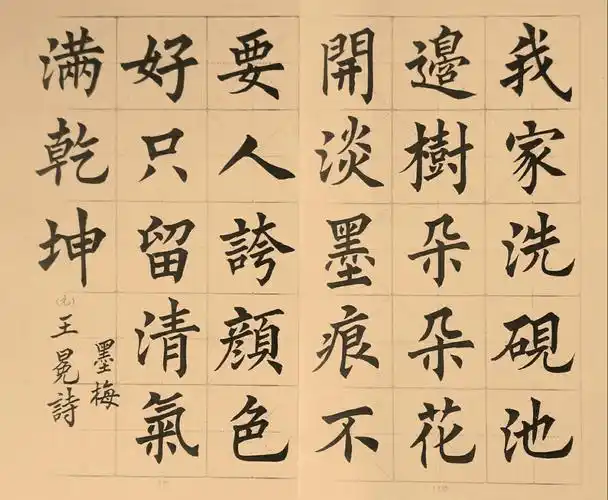 我家洗硯池
邊樹朵朵花
開淡墨痕不
要人誇顏色
好只留清氣
滿乾坤
墨梅
(元)王冕詩